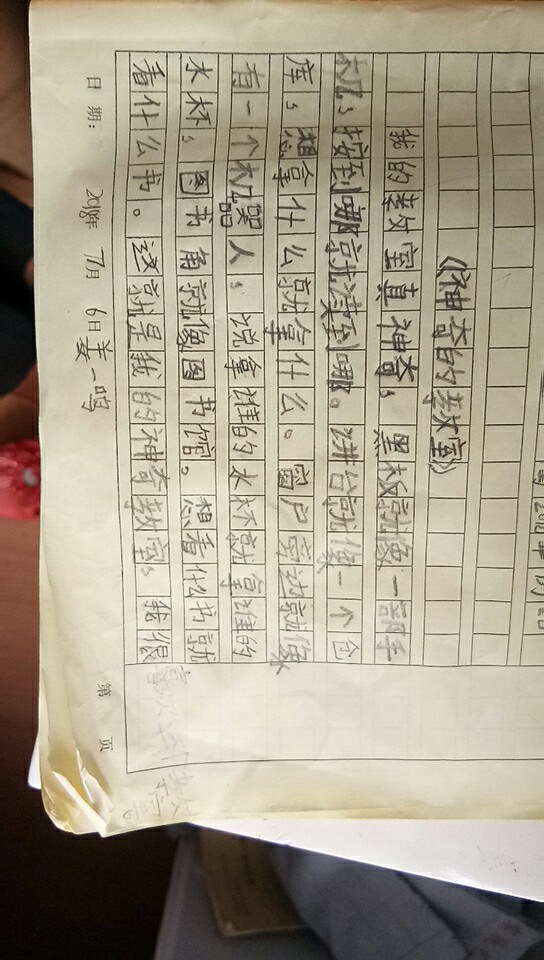 《神奇的教室》
我的教室真神奇，黑板就像一部手
机，按到哪就读到哪。讲台就像一个仓
库，想拿什么就拿什么。窗户旁边就像
有一个机器人，说拿谁的水杯就拿谁的
水杯，图书角就像图书馆。想看什么书就
看什么书。这就是我的神奇教室，我很
日期： 2018年 7月 6日姜一鸣
第 页